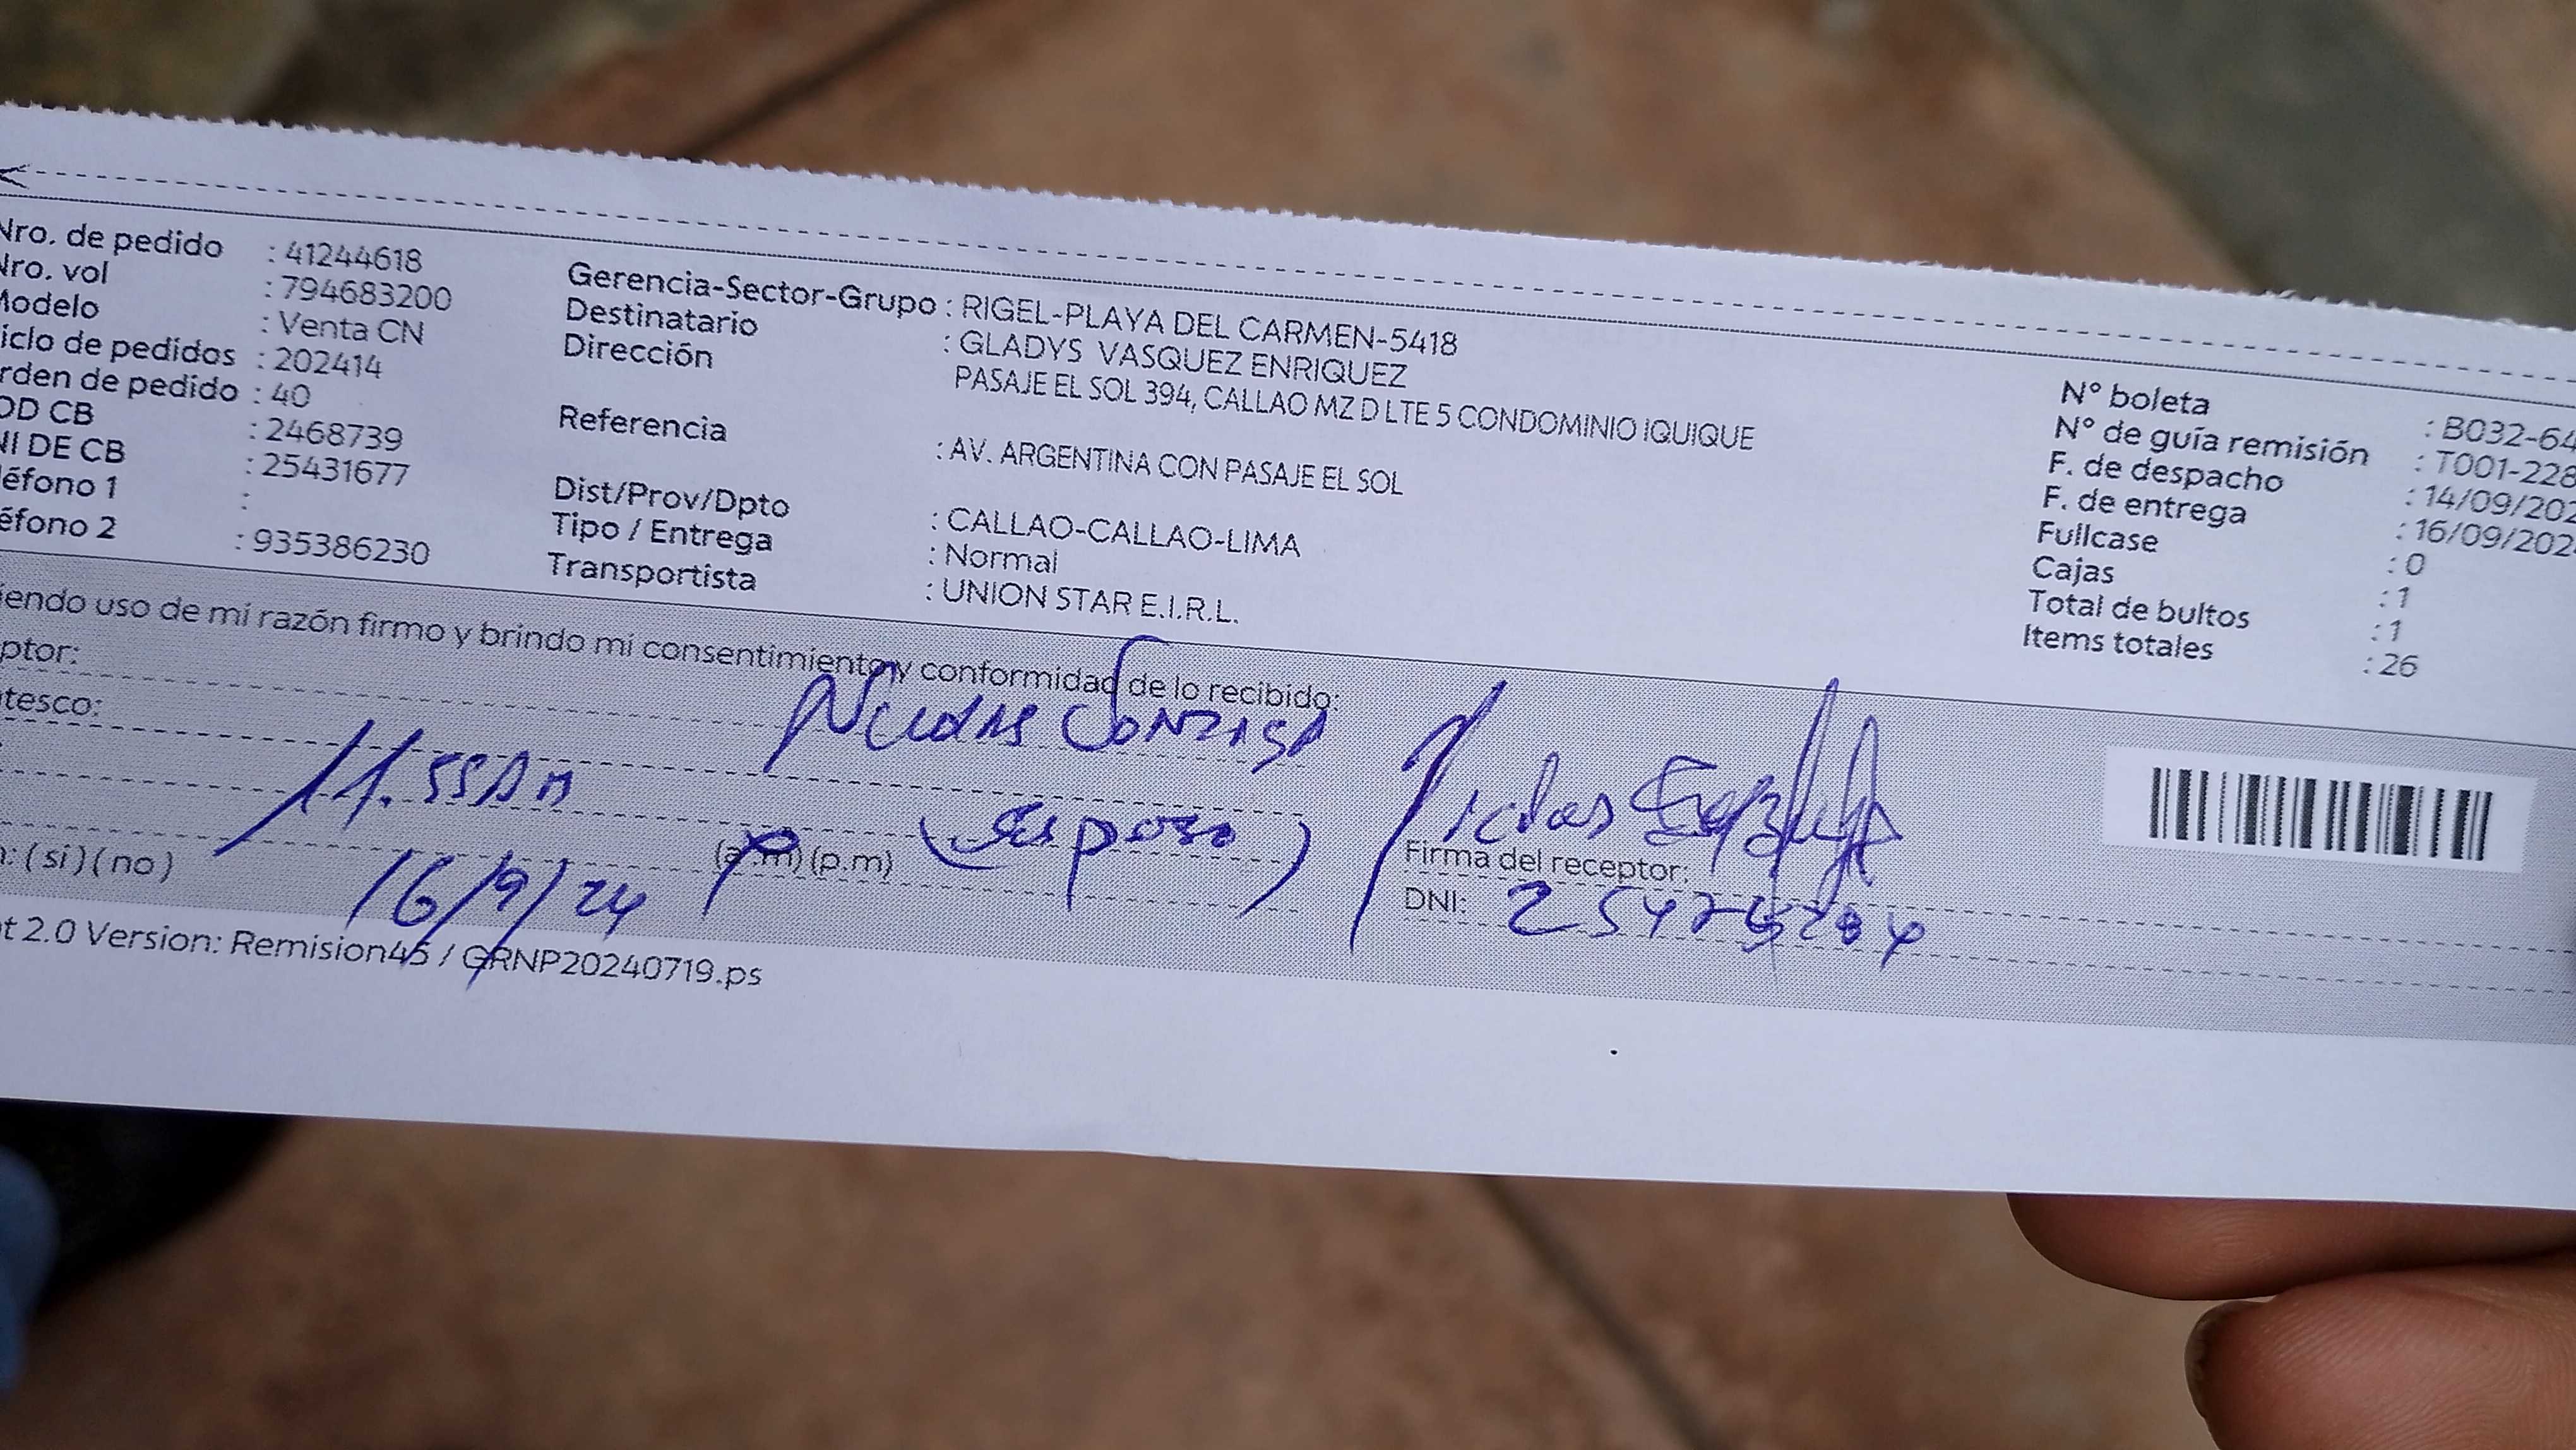 Nro. de pedido : 41244618
Nro. vol : 794683200
Modelo : Venta CN
iclo de pedidos : 202414
rden de pedido : 40
OD CB : 2468739
NI DE CB : 25431677
léfono 1 :
éfono 2 : 935386230
Gerencia-Sector-Grupo : RIGEL-PLAYA DEL CARMEN-5418
Destinatario : GLADYS VASQUEZ ENRIQUEZ
Dirección PASAJE EL SOL 394, CALLAO MZ D LTE 5 CONDOMINIO IQUIQUE
Referencia : AV. ARGENTINA CON PASAJE EL SOL
Dist/Prov/Dpto : CALLAO-CALLAO-LIMA
Tipo / Entrega : Normal
Transportista : UNION STAR E.I.R.L.
N° boleta : B032-64
N° de guía remisión : T001-228
F. de despacho : 14/09/202
F. de entrega : 16/09/202
Fullcase : 0
Cajas : 1
Total de bultos : 1
Items totales : 26
iendo uso de mi razón firmo y brindo mi consentimiento y conformidad de lo recibido:
ptor: Nicolas Gonzaga
tesco:
11.55 Am
(a.m)(p.m) (esposo)
Firma del receptor:
: (si)(no) 16/9/24
DNI:
t 2.0 Version: Remision45 / GRNP20240719.ps